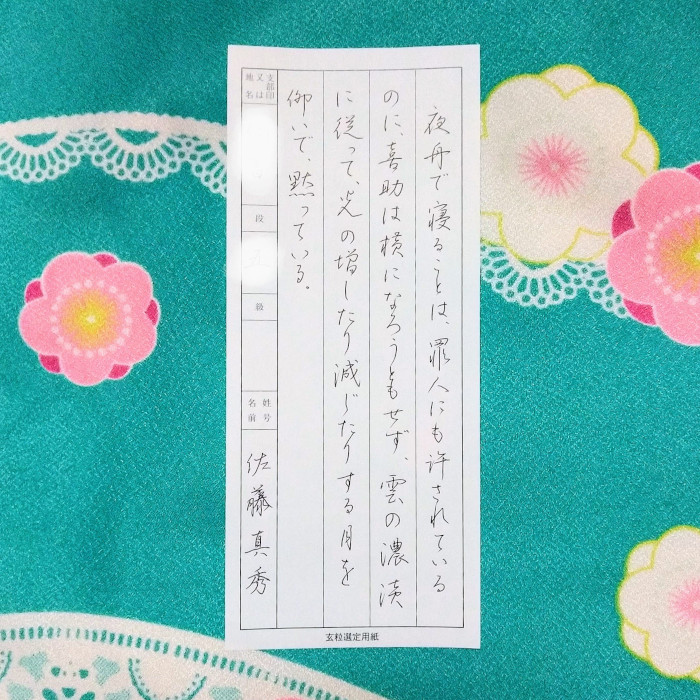 夜舟で寝ることは、罪人にも許されている
のに、喜助は横になろうともせず、雲の濃淡
に従って、光の増したり減じたりする月を
仰いで、黙っている。
支部印
又は
地名
段
級
姓号
名前
佐藤真秀
玄粒選定用紙